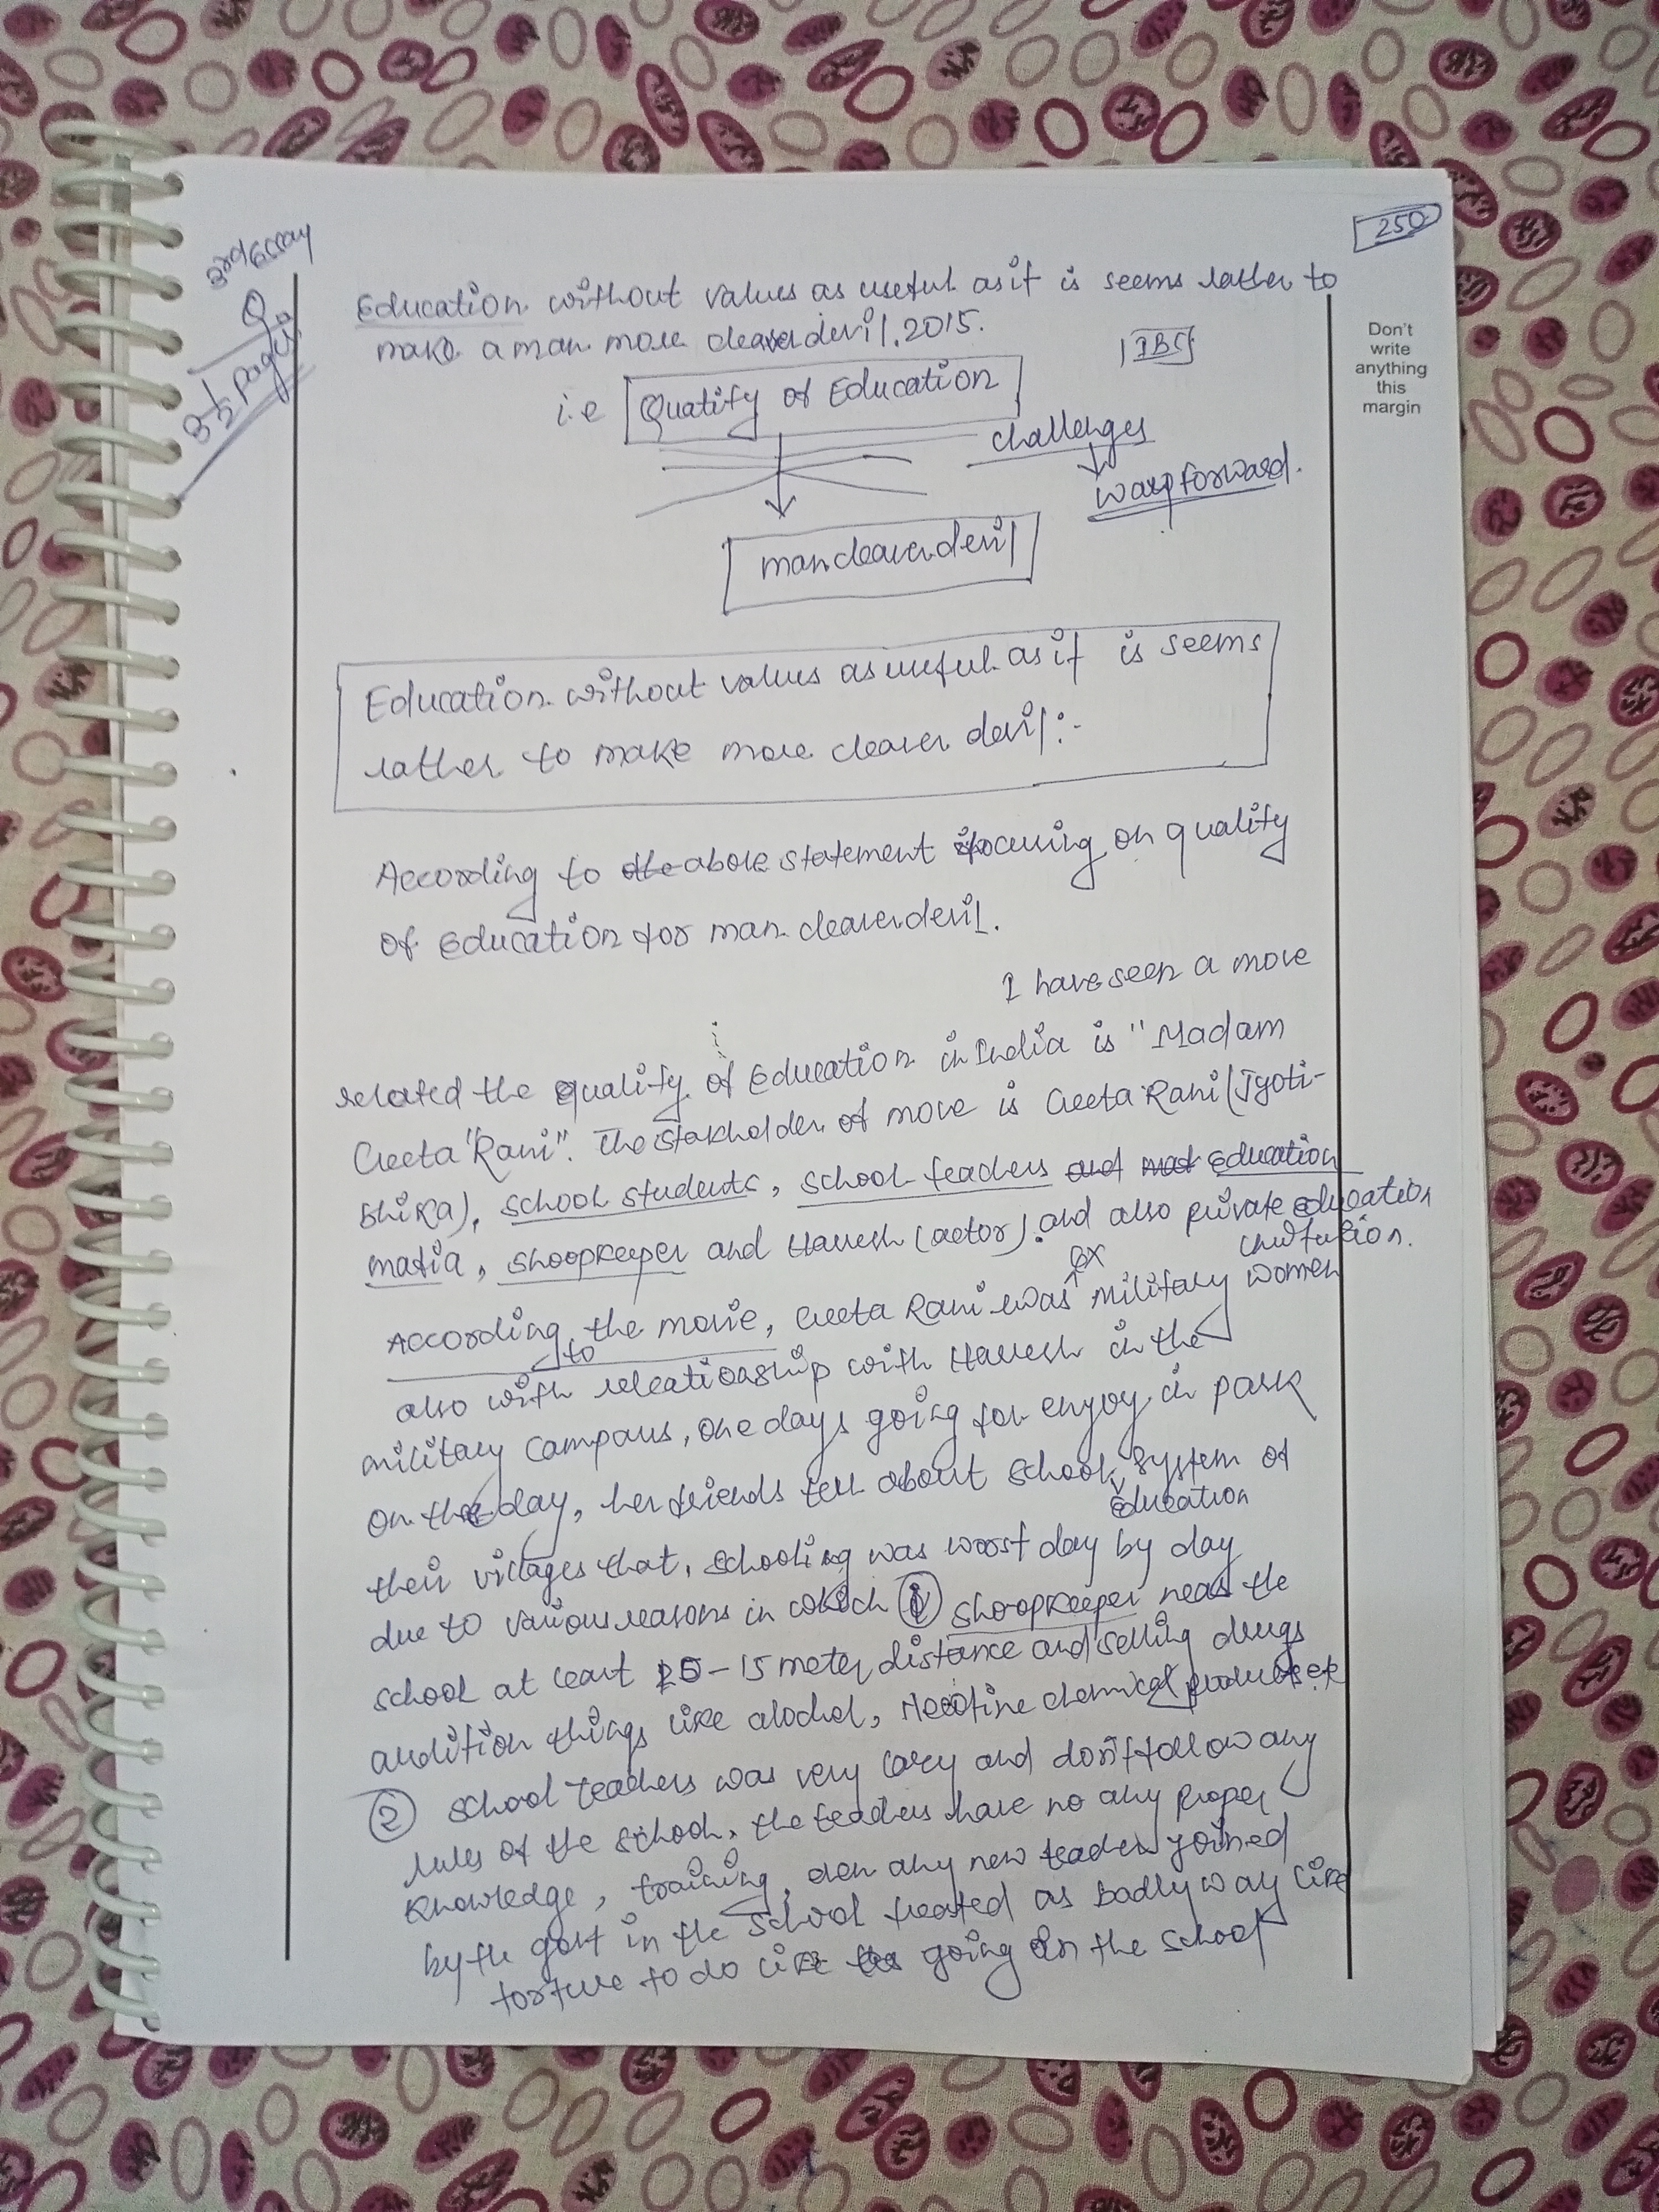 250
3rd Essay
Q
3½ pages
Education without values as useful as it is seems rather to
make a man more cleaver devil. 2015.
IBC
i.e Quality of Education
challenges
way forward.
man cleaver devil
Don't
write
anything
this
margin
Education without values as useful as it is seems
rather to make more cleaver devil :-
According to the above statement focusing on quality
of Education for man cleaver devil.
I have seen a move
related the quality of Education in India is "Madam
Geeta "Rani". The stakholder of move is Geeta Rani (Jyoti-
shika), school students, school teachers and education
mafia, shoopkeeper and (actor). and also private education
According to the movie, Geeta Rani was ex military women
also with releationship with in the
military campaus, one days going for enjoy in park
on the day, her friends tell about school education system of
their villages that, schooling was worst day by day
due to various reasons in which ① shoopkeeper near the
school at least - 15 meter distance and selling drugs
audition things like alochol, Necotine chemical products etc
② school teachers was very lazy and don't follow any
rules of the school, the teachers have no any proper
knowledge, training, even any new teacher joined
by the govt in the school treated as badly way like
torture to do like going in the school